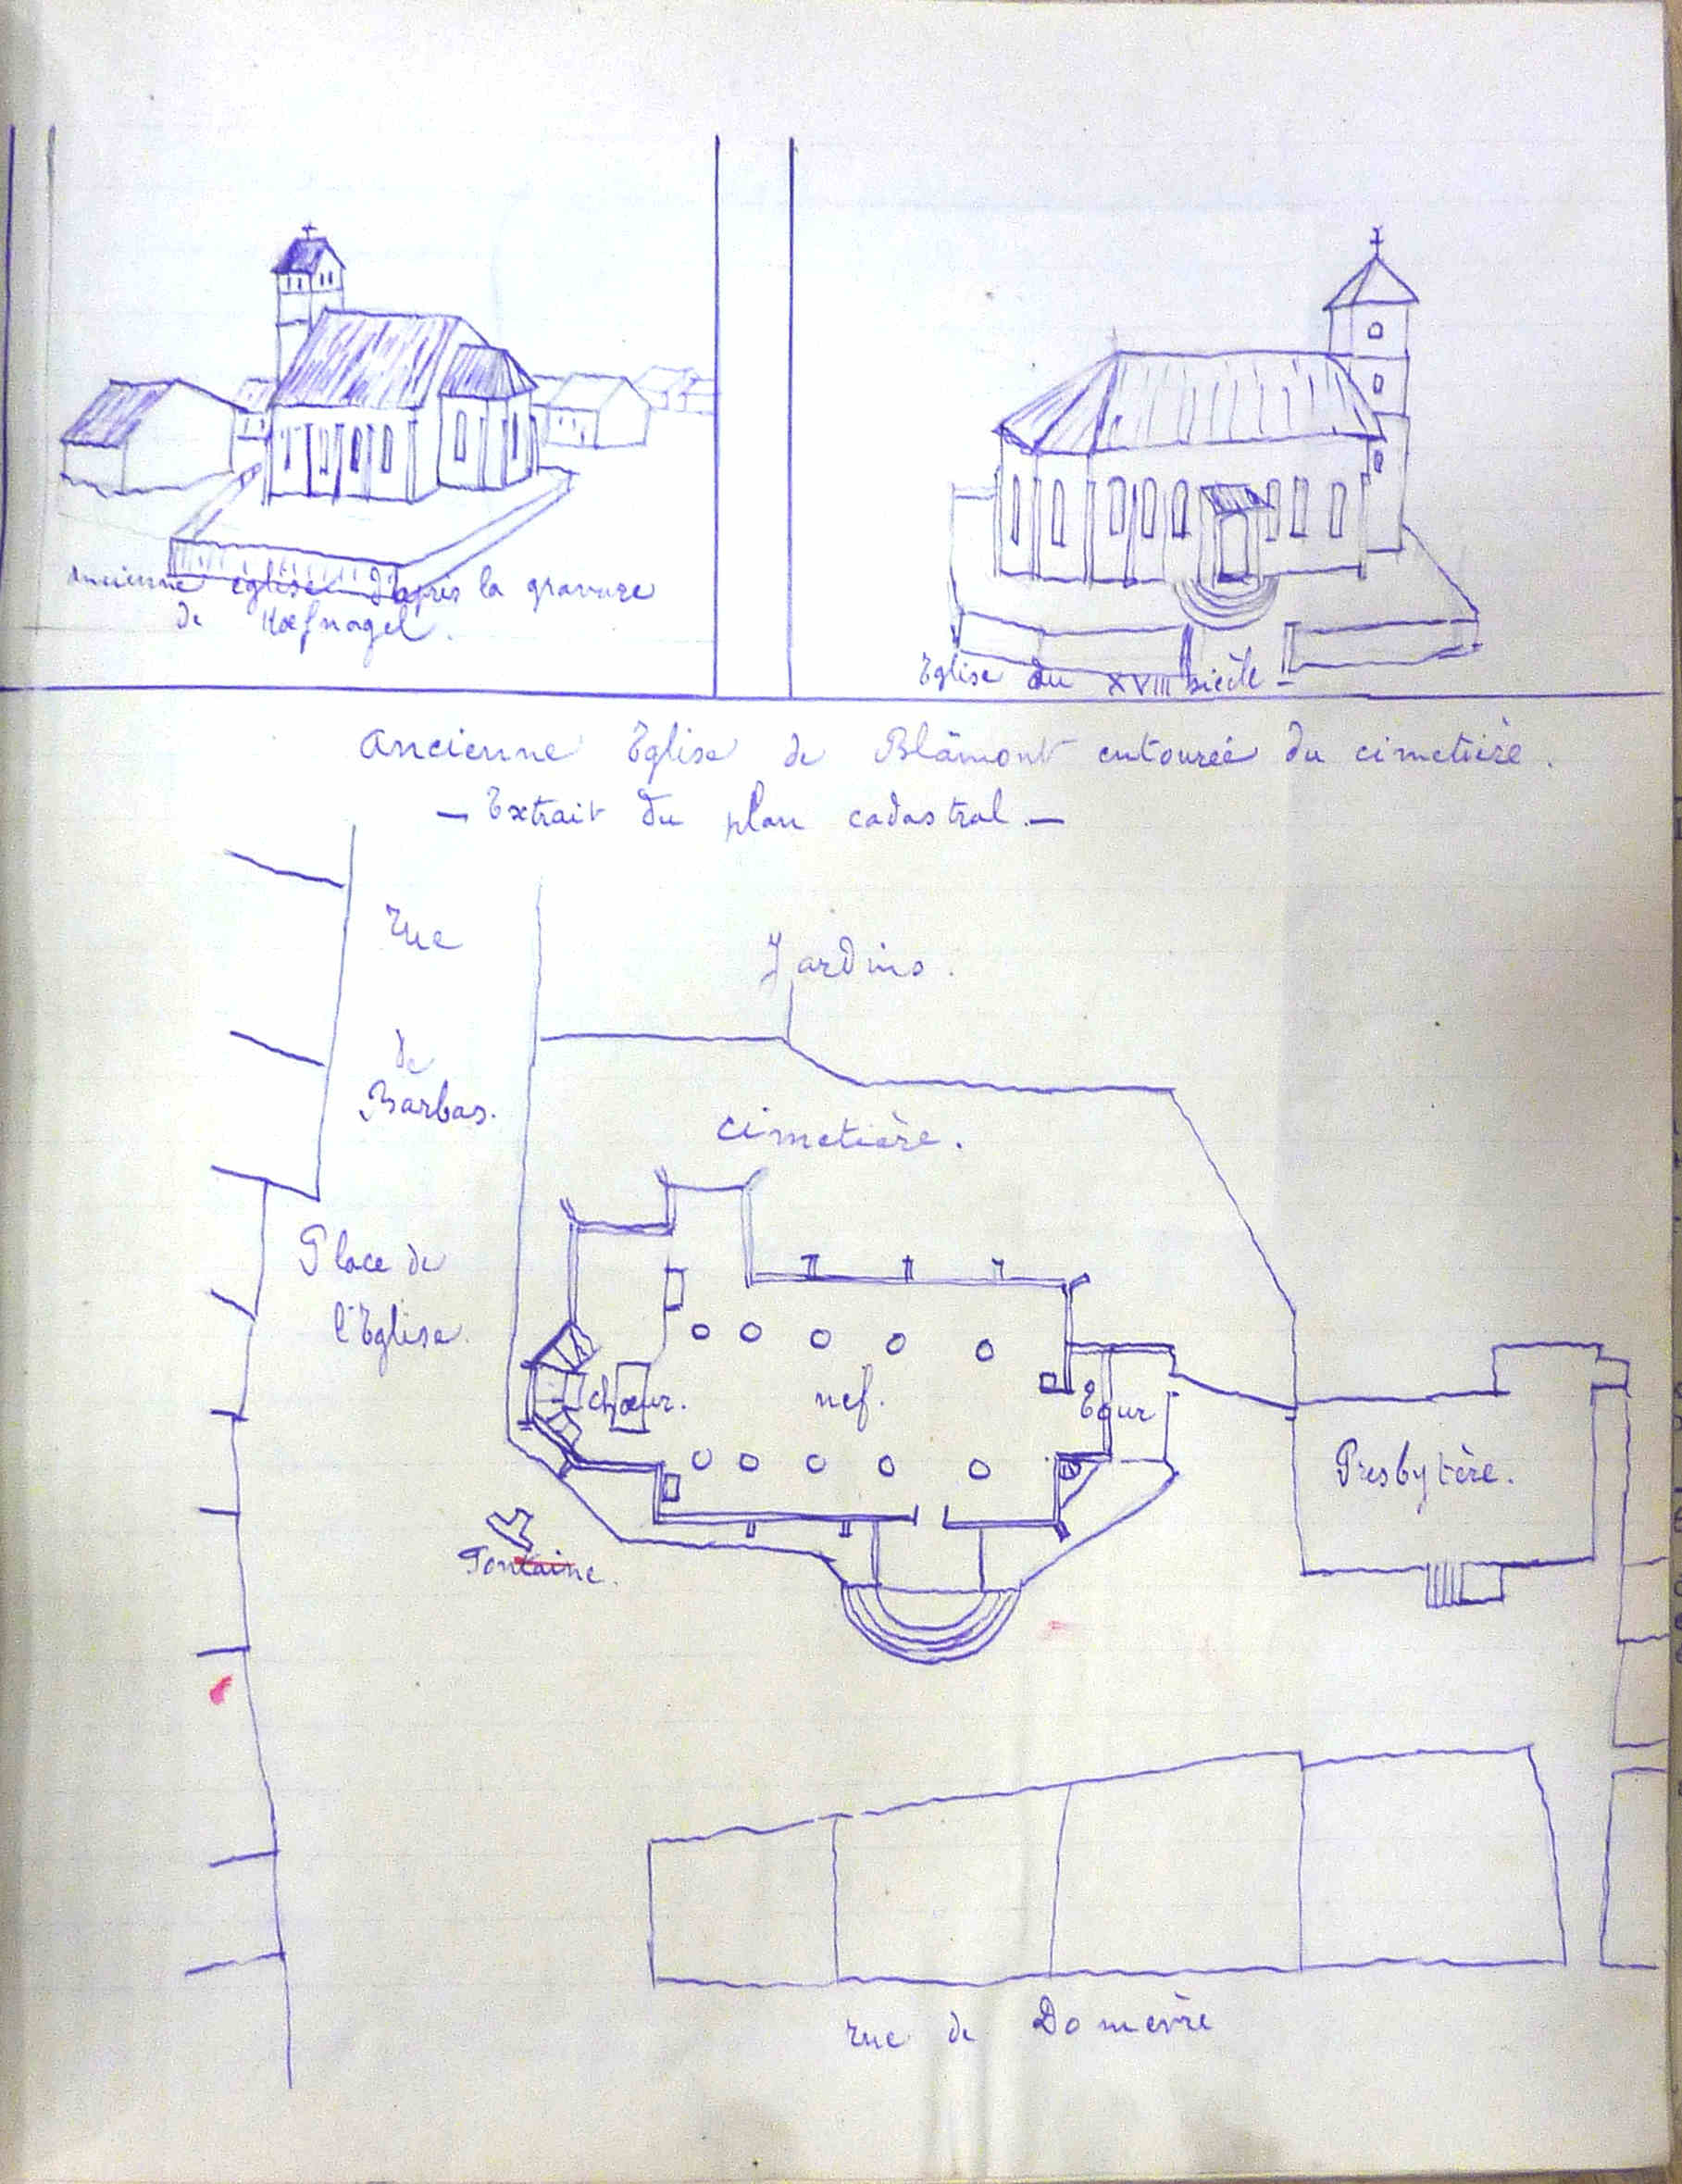 ancienne église d'après la gravure
de Hœfnagel.
Eglise du XVIII siècle -
Ancienne Eglise de Blâmont entourée du cimetière.
- Extrait du plan cadastral. -
rue
de
Barbas.
Jardins.
cimetière.
Place de
l'Eglise.
chœur.
nef.
Tour
Presbytère.
Fontaine.
rue de Domèvre